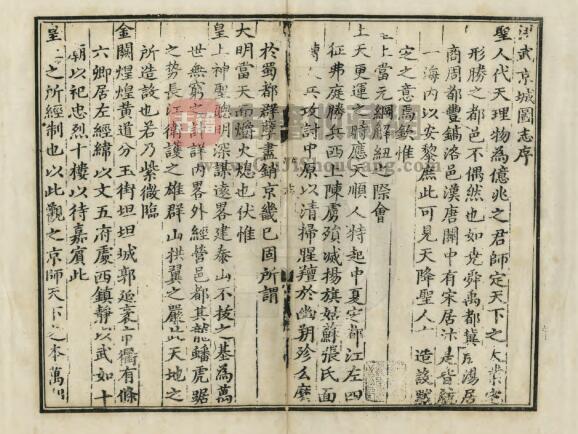 洪武京城圖志序
聖人代天理物為億兆之君師定天下之大業必
形勝之都邑不偶然也如堯舜禹都冀后湯居
商周都豐鎬洛邑漢唐關中有宋居汴是皆
一海內以安黎庶此可見天降聖人 造設默
定之意焉欽惟
上當元綱解紐之際會
上天更運之時應天順人特起中夏定都江左四
征弗庭勝兵西上陳虜殞城揚旗姑蘇張氏面
縛 兵攻討中原以清掃腥羶於幽朔殄么麼
於蜀都群孽盡銷京畿已固所謂
大明當天而爝火熄也伏惟
皇上神聖聰明深謀遠畧建泰山不拔之基為萬
世無窮之 詳內畧外經營邑都其龍蟠虎踞
之勢長江衛護之雄群山拱翼之嚴此天地之
所造設也若乃紫微臨
金闕煌煌黃道分玉街坦坦城郭延袤市衢有條
六卿居左經緯以文五府處西鎮靜以武如十
廟以祀忠烈十樓以待嘉賓此
皇上之所經制也以此觀之京師天下之本萬
古籍
GuJiShouCang.Com